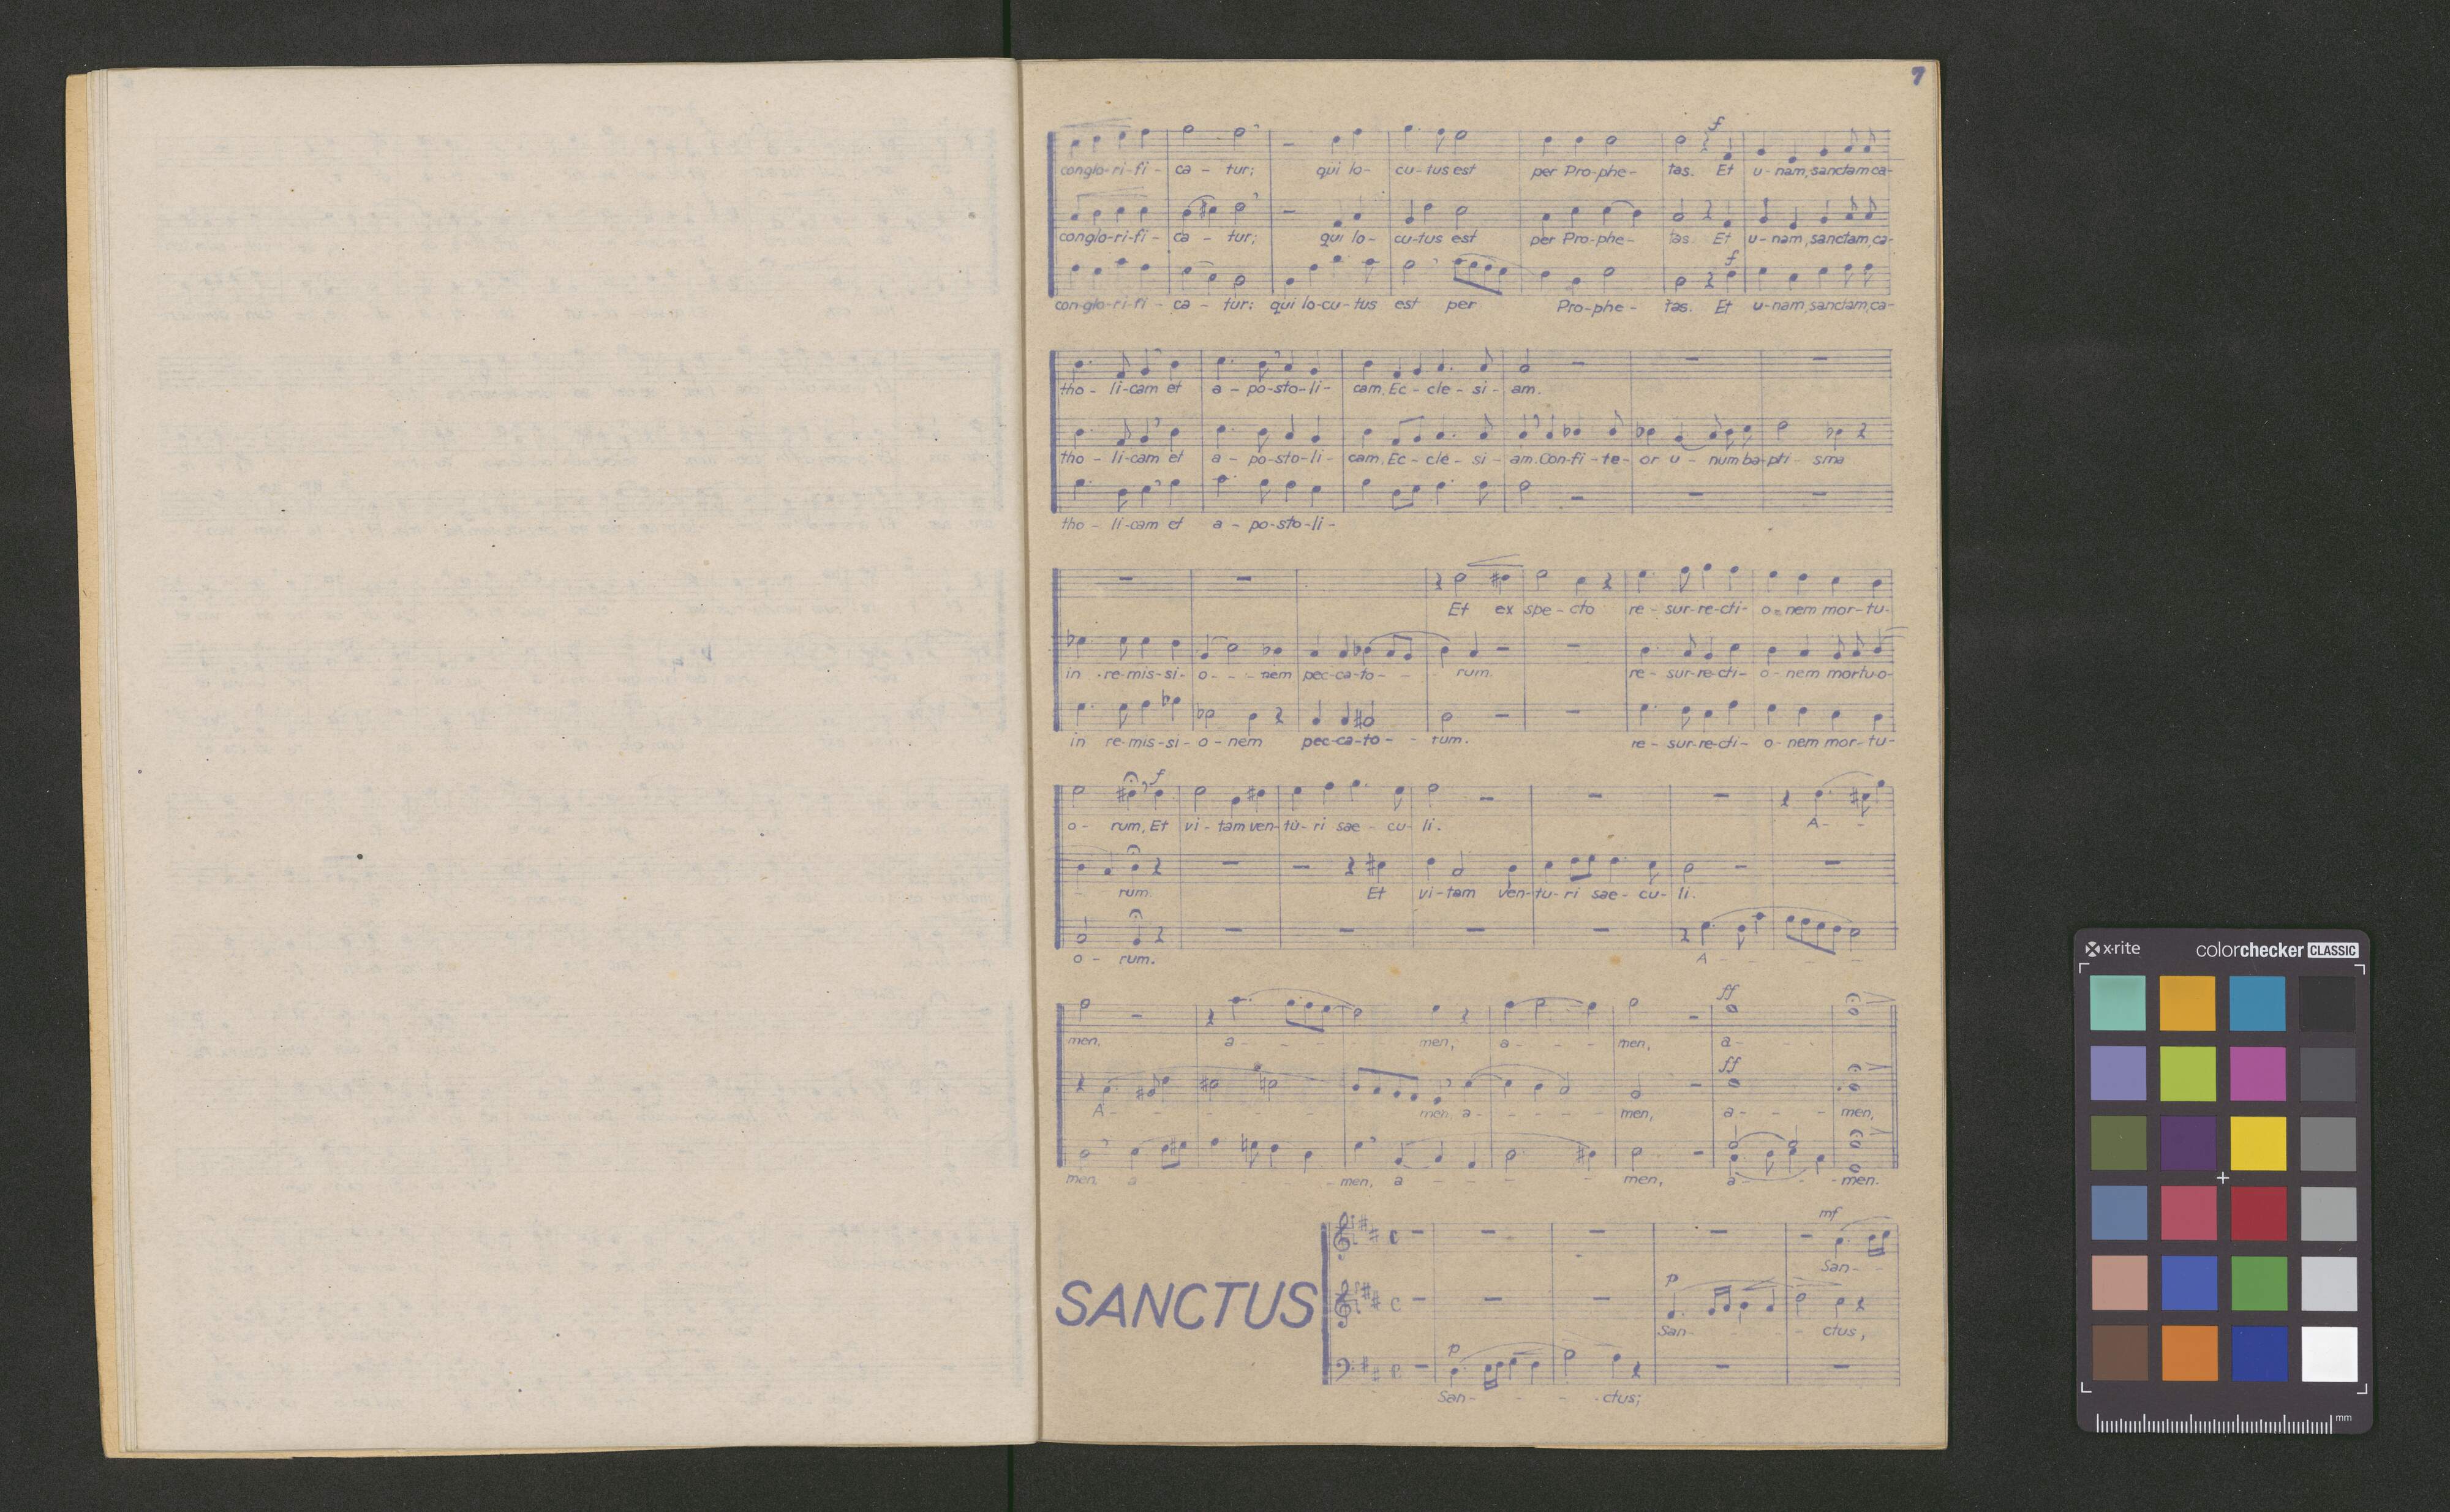 7
f
conglo-ri-fi- ca - tur; qui lo- cu-tus est per Pro-phe- tas. Et u-nam, sanctam ca-
conglo-ri-fi- ca - tur; qui lo- cu-tus est per Pro-phe- tas. Et u-nam, sanctam, ca-
f
con-glo-ri-fi- ca - tur: qui lo-cu-tus est per Pro-phe- tas. Et u-nam, sanctam, ca-
tho - li-cam et a - po-sto-li- cam, Ec - cle - si - am.
tho - li-cam et a - po-sto-li- cam, Ec - cle - si - am. Con-fi-te- or u - num ba-pti- sma
tho - li-cam et a - po-sto-li-
Et ex spe-cto re - sur-re-cti- o-nem mor-tu-
in re-mis-si- o - - - nem pec-ca-to - - rum. re - sur-re-cti- o-nem mortu-o-
in re-mis-si- o - nem pec-ca-to - - rum. re - sur-re-cti- o-nem mor-tu-
f
o- rum, Et vi-tam ven-tu-ri sae - cu- li. A- -
- rum. Et vi-tam ven-tu-ri sae- cu- li.
o - rum. A - - - -
ff
men, a - - - - men, a - - - men, a- - -
ff
A - - - - - - men, a - - - - men, a - - - men,
men, a - - - - - men, a - - - - men, a - - men.
mf
San- -
SANCTUS
p
San- - - - ctus,
p
San- - - - ctus;
x·rite colorchecker CLASSIC
mm